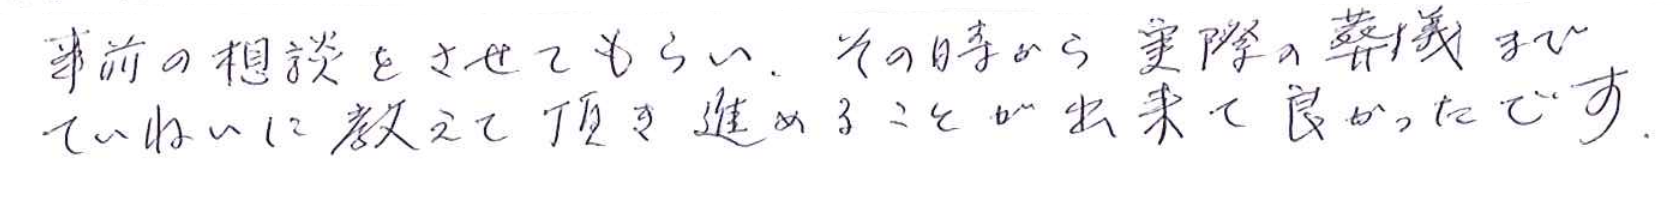 事前の相談をさせてもらい、その時から実際の葬儀まで
ていねいに教えて頂き進めることが出来て良かったです。